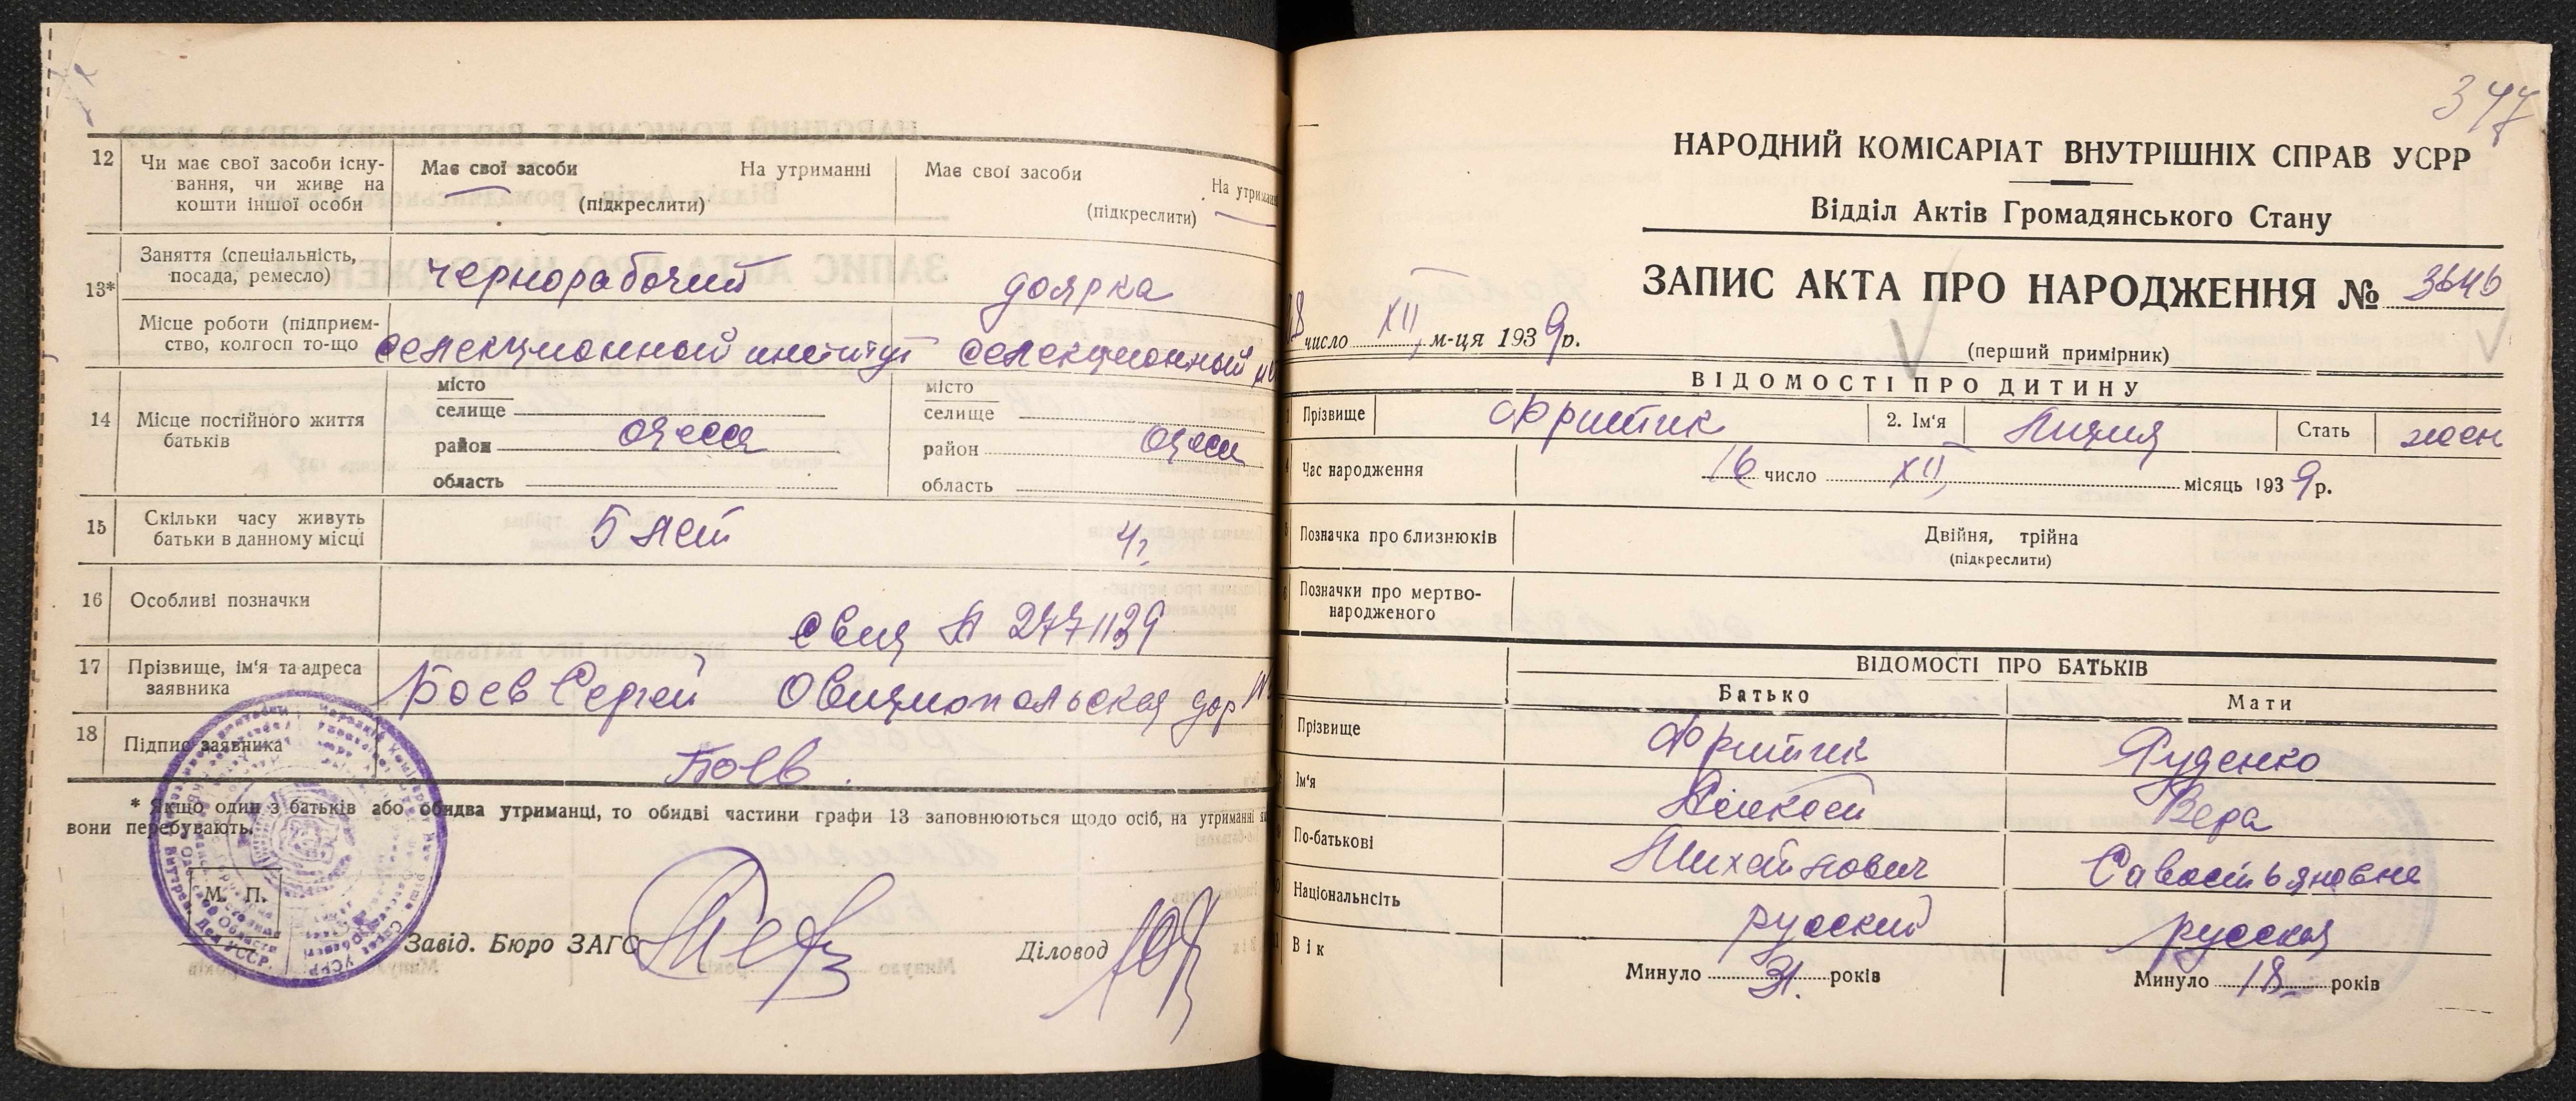 12 Чи має свої засоби існування, чи живе на кошти іншої особи
Має свої засоби На утриманні
(підкреслити)
Має свої засоби На утриманні
(підкреслити)
13* Заняття (спеціальність, посада, ремесло) чернорабочий доярка
Місце роботи (підприємство, колгосп то-що селекционный институт селекционный
14 Місце постійного життя батьків
місто
селище
район Одесса
область
місто
селище
район Одесса
область
15 Скільки часу живуть батьки в данному місці 5 лет 4 г
16 Особливі позначки
Свид № 2771139
17 Прізвище, ім'я та адреса заявника Боев Сергей Овидиопольская дор
18 Підпис заявника Боев.
* Якщо один з батьків або обидва утриманці, то обидві частини графи 13 заповнюються щодо осіб, на утриманні
вони перебувають.
М. П.
Завід. Бюро ЗАГС
Діловод
347
НАРОДНИЙ КОМІСАРІАТ ВНУТРІШНІХ СПРАВ УСРР
Відділ Актів Громадянського Стану
ЗАПИС АКТА ПРО НАРОДЖЕННЯ № 3646
18 число XII м-ця 1939 р.
(перший примірник)
ВІДОМОСТІ ПРО ДИТИНУ
Прізвище 2. Ім'я Лидия Стать жен
Час народження 16 число XII місяць 1939 р.
Позначка про близнюків Двійня, трійна
(підкреслити)
Позначки про мертвонародженого
ВІДОМОСТІ ПРО БАТЬКІВ
Батько Мати
Прізвище Руденко
Ім'я Вера
По-батькові Михайлович Савостьяновна
Національність русский русская
Вік
Минуло 31. років Минуло 18 років